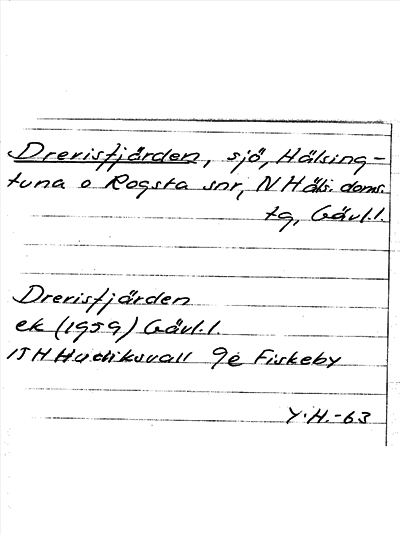 Drevisfjärden, sjö, Hälsing-
tuna o Rogsta snr, N Häls. doms.
tg, Gävl.l.
Drevisfjärden
ek (1959) Gävl.l.
15H Hudiksvall 9e Fiskeby
Y.H.-63